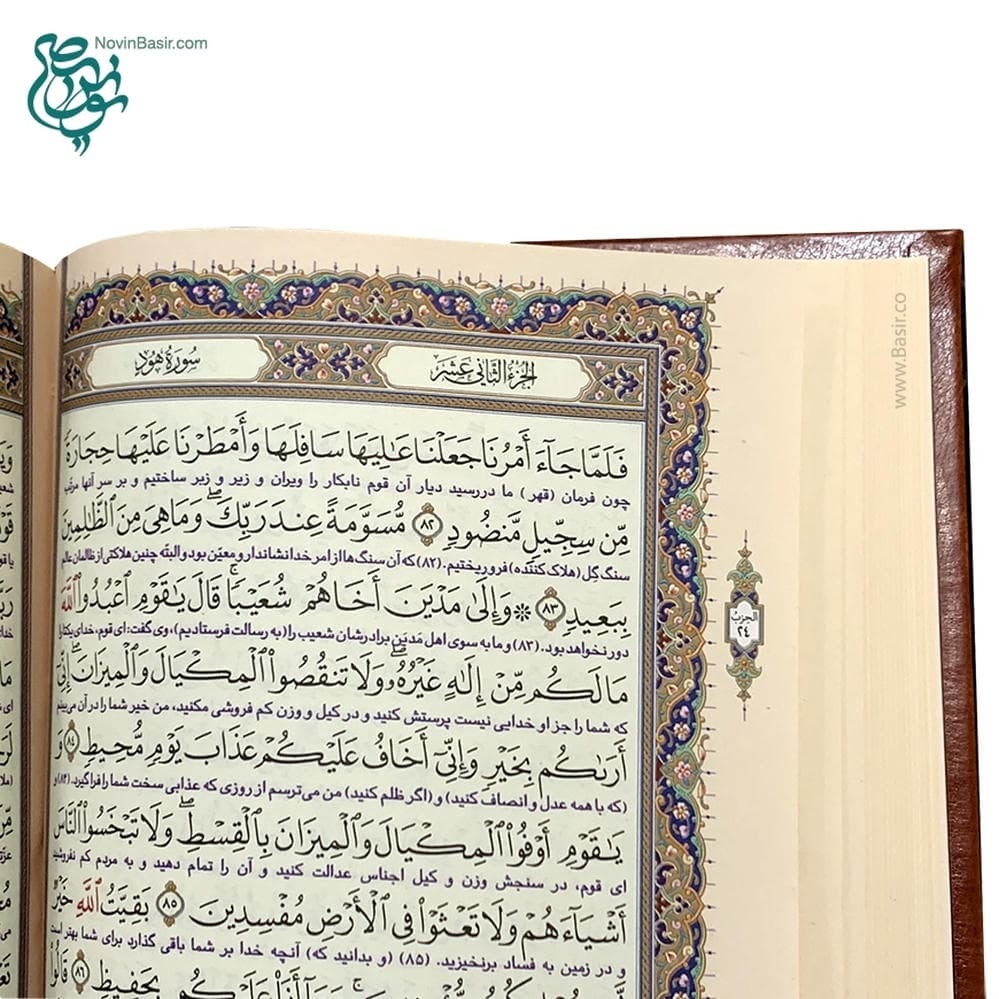 NovinBasir.com
www.Basir.co
سُورَةُ هُود
الجُزءُ الثّانی عَشَر
فَلَمَّا جَآءَ أَمْرُنَا جَعَلْنَا عَٰلِيَهَا سَافِلَهَا وَأَمْطَرْنَا عَلَيْهَا حِجَارَةً
چون فرمان (قهر) ما دررسید دیار آن قوم نابکار را ویران و زیر و زبر ساختیم و بر سر آنها مرتب
مِّن سِجِّيلٍ مَّنضُودٍ ۝٨٢ مُّسَوَّمَةً عِندَ رَبِّكَ ۖ وَمَا هِيَ مِنَ ٱلظَّٰلِمِينَ
سنگ گِل (هلاک کننده) فرو ریختیم. (۸۲) که آن سنگ ها از امر خدا نشاندار و معیّن بود و البتّه چنین هلاکتی از ظالمان عالم
بِبَعِيدٍ ۝٨٣ ۞ وَإِلَىٰ مَدْيَنَ أَخَاهُمْ شُعَيْبًا ۚ قَالَ يَٰقَوْمِ ٱعْبُدُوا۟ ٱللَّهَ
دور نخواهد بود. (۸۳) و ما به سوی اهل مَدیَن برادرشان شعیب را (به رسالت فرستادیم)، وی گفت: ای قوم، خدای یکتا را
مَا لَكُم مِّنْ إِلَٰهٍ غَيْرُهُۥ ۖ وَلَا تَنقُصُوا۟ ٱلْمِكْيَالَ وَٱلْمِيزَانَ ۚ إِنِّيٓ
که شما را جز او خدایی نیست پرستش کنید و در کیل و وزن کم فروشی مکنید، من خیر شما را در آن می‌بینم
أَرَىٰكُم بِخَيْرٍ وَإِنِّيٓ أَخَافُ عَلَيْكُمْ عَذَابَ يَوْمٍ مُّحِيطٍ ۝٨٤ وَ
(که با همه عدل و انصاف کنید) و (اگر ظلم کنید) من می‌ترسم از روزی که عذابی سخت شما را فرا گیرد. (۸۴) و
يَٰقَوْمِ أَوْفُوا۟ ٱلْمِكْيَالَ وَٱلْمِيزَانَ بِٱلْقِسْطِ ۖ وَلَا تَبْخَسُوا۟ ٱلنَّاسَ
ای قوم، در سنجش وزن و کیل اجناس عدالت کنید و آن را تمام دهید و به مردم کم نفروشید
أَشْيَآءَهُمْ وَلَا تَعْثَوْا۟ فِي ٱلْأَرْضِ مُفْسِدِينَ ۝٨٥ بَقِيَّتُ ٱللَّهِ خَيْرٌ
و در زمین به فساد برنخیزید. (۸۵) (و بدانید که) آنچه خدا بر شما باقی گذارد برای شما بهتر است
عَلَيْكُم بِحَفِيظٍ ۝٨٦ قَالُوا۟
الحِزبُ
٢٤